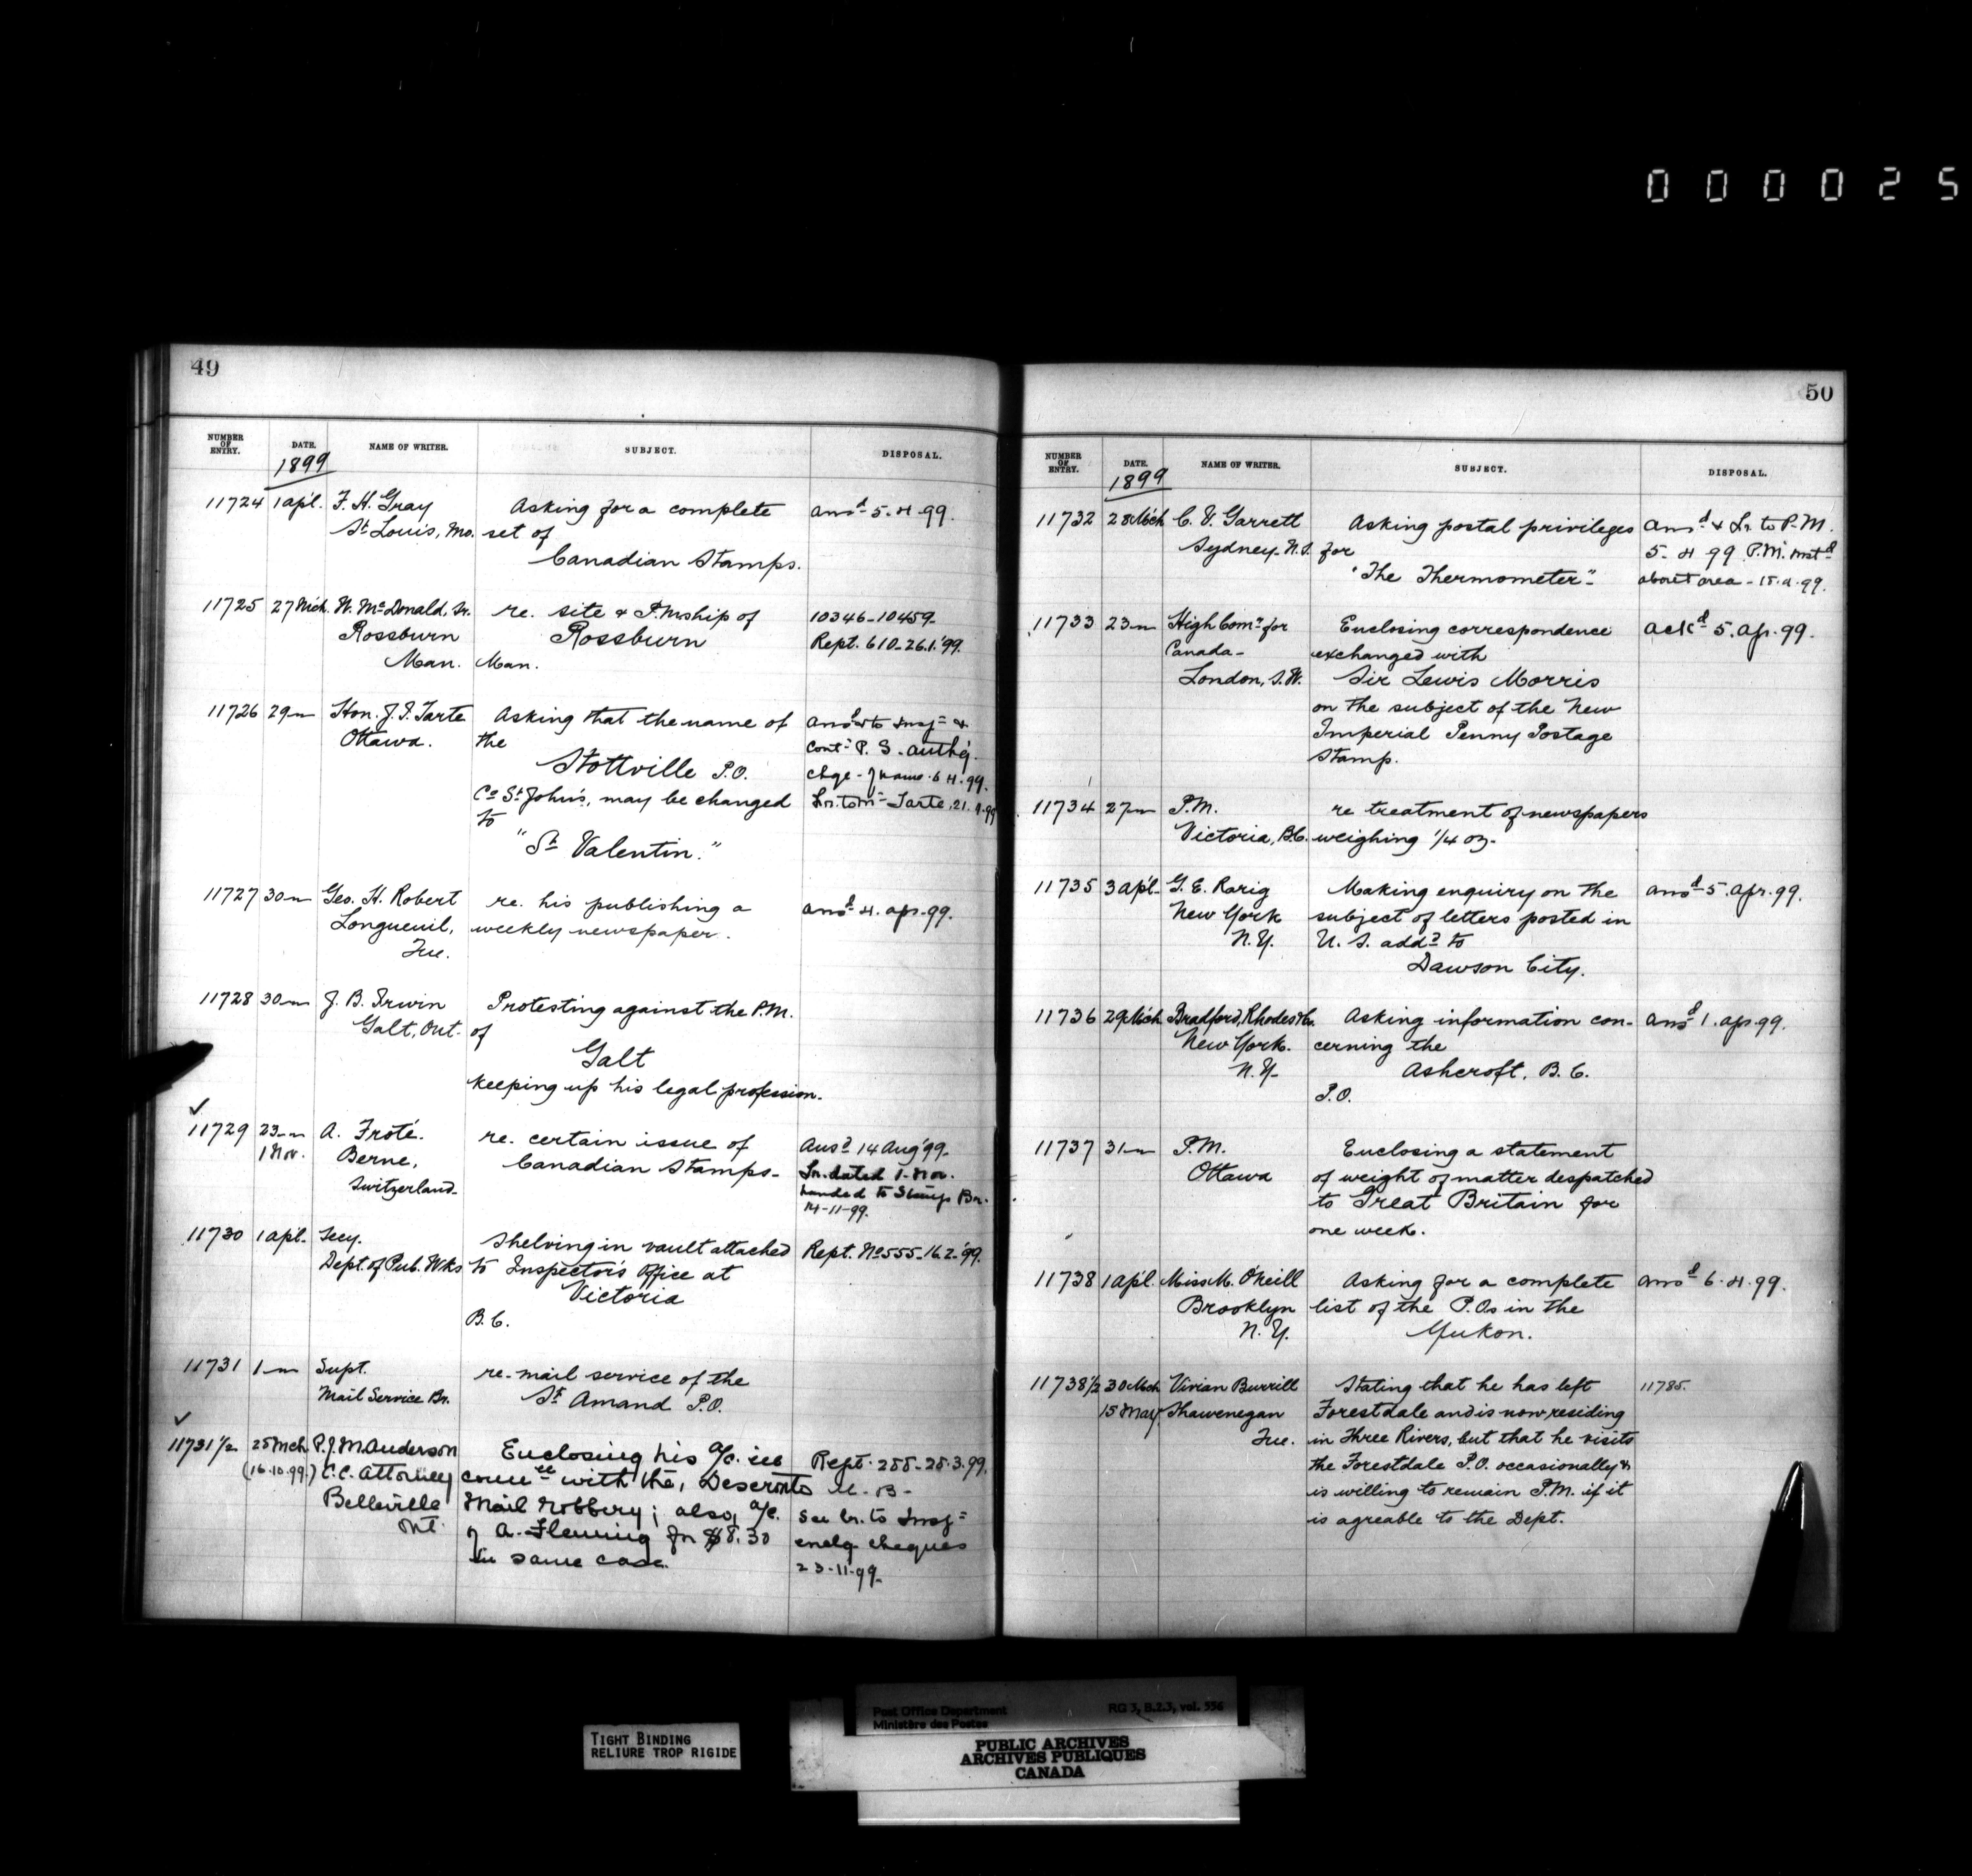 000025
49
NUMBER OF ENTRY. DATE. NAME OF WRITER. SUBJECT. DISPOSAL.
1899
11724 1 apl. F. H. Gray Asking for a complete ansd 5.4.99.
St Louis, Mo. set of
Canadian Stamps.
11725 27 Mch. W. McDonald, Sr. re. site & P.Mship of 10346-10459-
Rossburn Rossburn Rept. 610-26.1.'99.
Man. Man.
11726 29 " Hon. J. I. Tarte Asking that the name of ansd & to Insp. &
Ottawa. the cont. P. S. auth'g.
Stottville P.O. chge. of name. 6.4.99.
Co St John's, may be changed Lr. to Mr Tarte, 21.4.99
to
"St Valentin."
11727 30 " Geo. H. Robert re. his publishing a ansd 4. apr. 99.
Longueuil, weekly newspaper.
Que.
11728 30 " J. B. Irwin Protesting against the P.M.
Galt, Ont. of
Galt
keeping up his legal profession.
✓
11729 23 " A. Froté. re. certain issue of Ansd 14 Aug '99.
1 Nov. Berne, Canadian Stamps. Lr. dated 1. Nov.
Switzerland. handed to Stamp Br.
14-11-99.
11730 1 apl. Secy. Shelving in vault attached Rept. No 555-16.2.'99.
Dept. of Pub. Wks to Inspector's Office at
Victoria
B.C.
11731 1 " Supt. re. mail service of the
Mail Service Br. St Amand P.O.
✓
11731 1/2 25 Mch P. J. M. Anderson Enclosing his a/c. in Rept. 288-28.3.99.
(16.10.99.) C.C. Attorney with the, Deseronto
Belleville Mail robbery; also, a/c. See lr. to Insp.
Ont. of A. Fleming for $8.30 enclg. cheques
in same case. 23-11-99.
50
NUMBER OF ENTRY. DATE. NAME OF WRITER. SUBJECT. DISPOSAL.
1899
11732 28 Mch C. V. Garrett Asking postal privileges ansd & Lr. to P.M.
Sydney. N.S. for 5-4-99. P.M. instd
"The Thermometer". about area - 18.4.99.
11733 23 " High Comr for Enclosing correspondence ackd 5. Ap. 99.
Canada - exchanged with
London, S.W. Sir Lewis Morris
on the subject of the New
Imperial Penny Postage
Stamp.
11734 27 " P.M. re treatment of newspapers
Victoria, B.C. weighing 1/4 oz.
11735 3 apl. G. E. Rarig Making enquiry on the ansd 5. apr. 99.
New York subject of letters posted in
N.Y. U. S. addd to
Dawson City.
11736 29 Mch Bradford, Rhodes & Co. Asking information con- ansd 1. apr. 99.
New York. cerning the
N.Y. Ashcroft, B.C.
P.O.
11737 31 " P.M. Enclosing a statement
Ottawa of weight of matter despatched
to Great Britain for
one week.
11738 1 apl. Miss M. O'Neill Asking for a complete ansd 6.4.99.
Brooklyn list of the P.Os in the
N.Y. Yukon.
11738 1/2 30 Mch Vivian Burrill Stating that he has left 11785.
15 May Shawenegan Forestdale and is now residing
Que. in Three Rivers, but that he visits
the Forestdale P.O. occasionally &
is willing to remain P.M. if it
is agreable to the Dept.
TIGHT BINDING
RELIURE TROP RIGIDE
Post Office Department RG 3, B.2.3, vol. 556
Ministère des Postes
PUBLIC ARCHIVES
ARCHIVES PUBLIQUES
CANADA